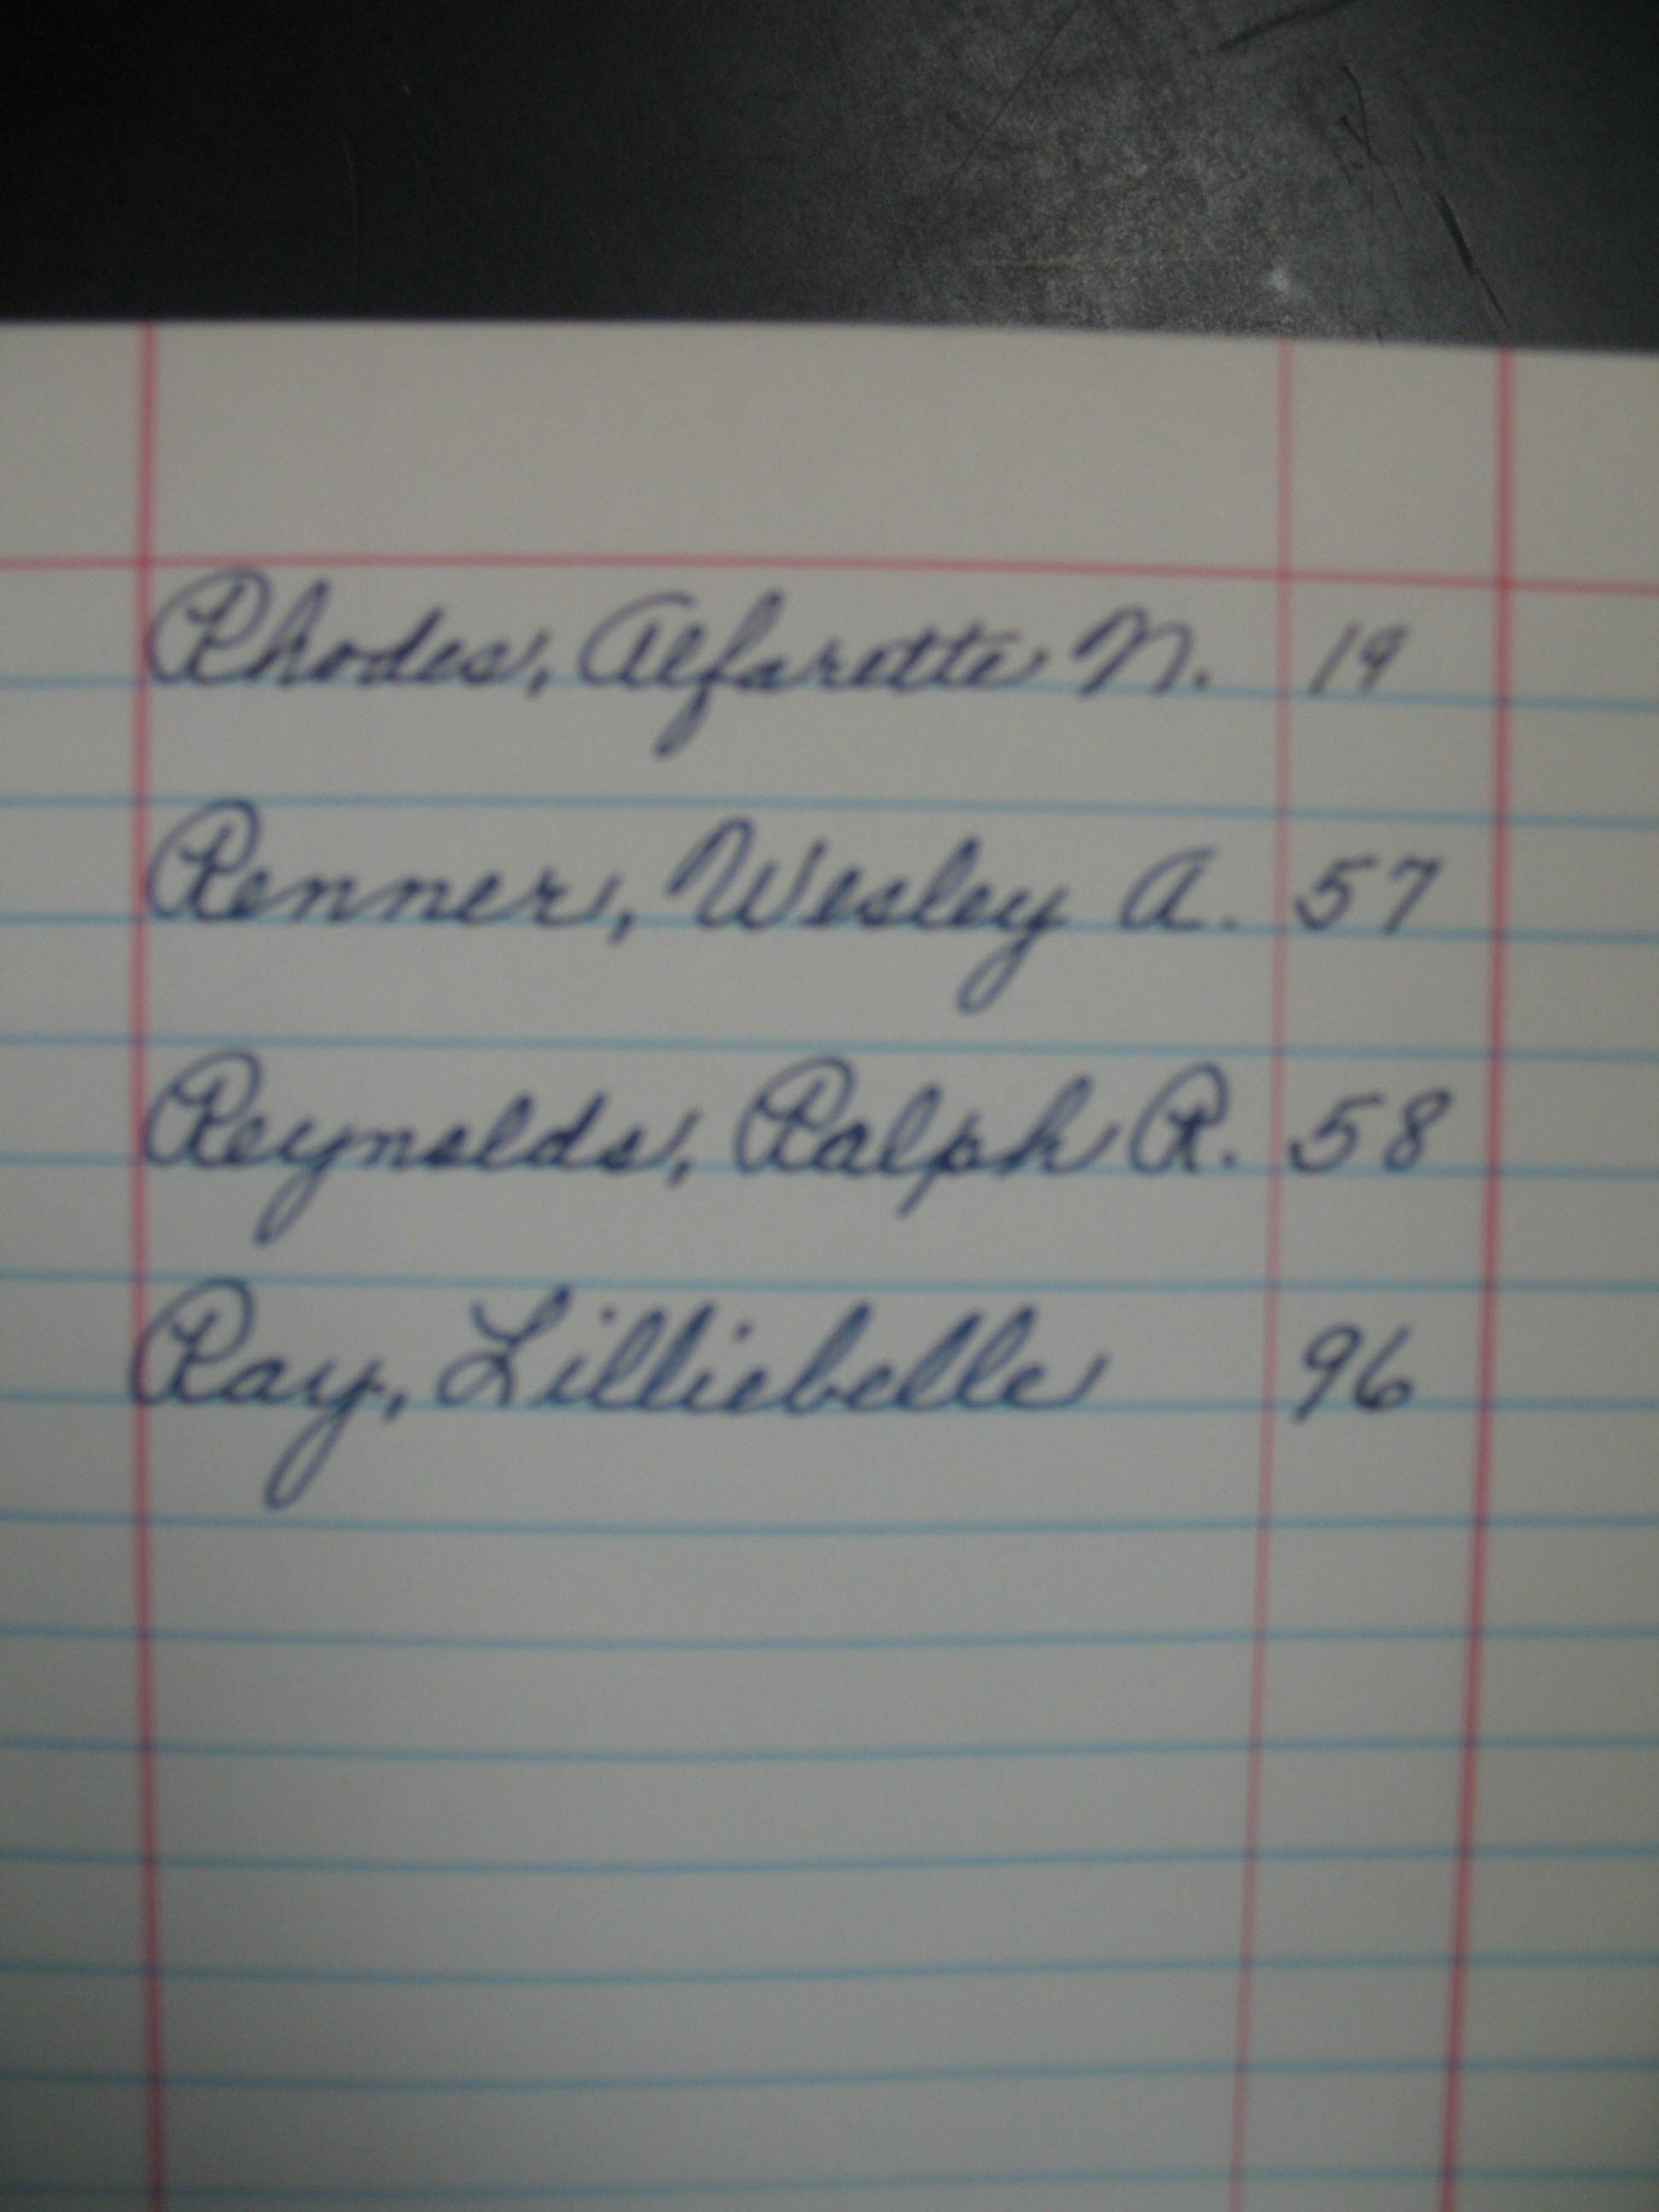 Rhodes, Alfarette N. 19
Renner, Wesley A. 57
Reynolds, Ralph R. 58
Ray, Lilliebelle 96